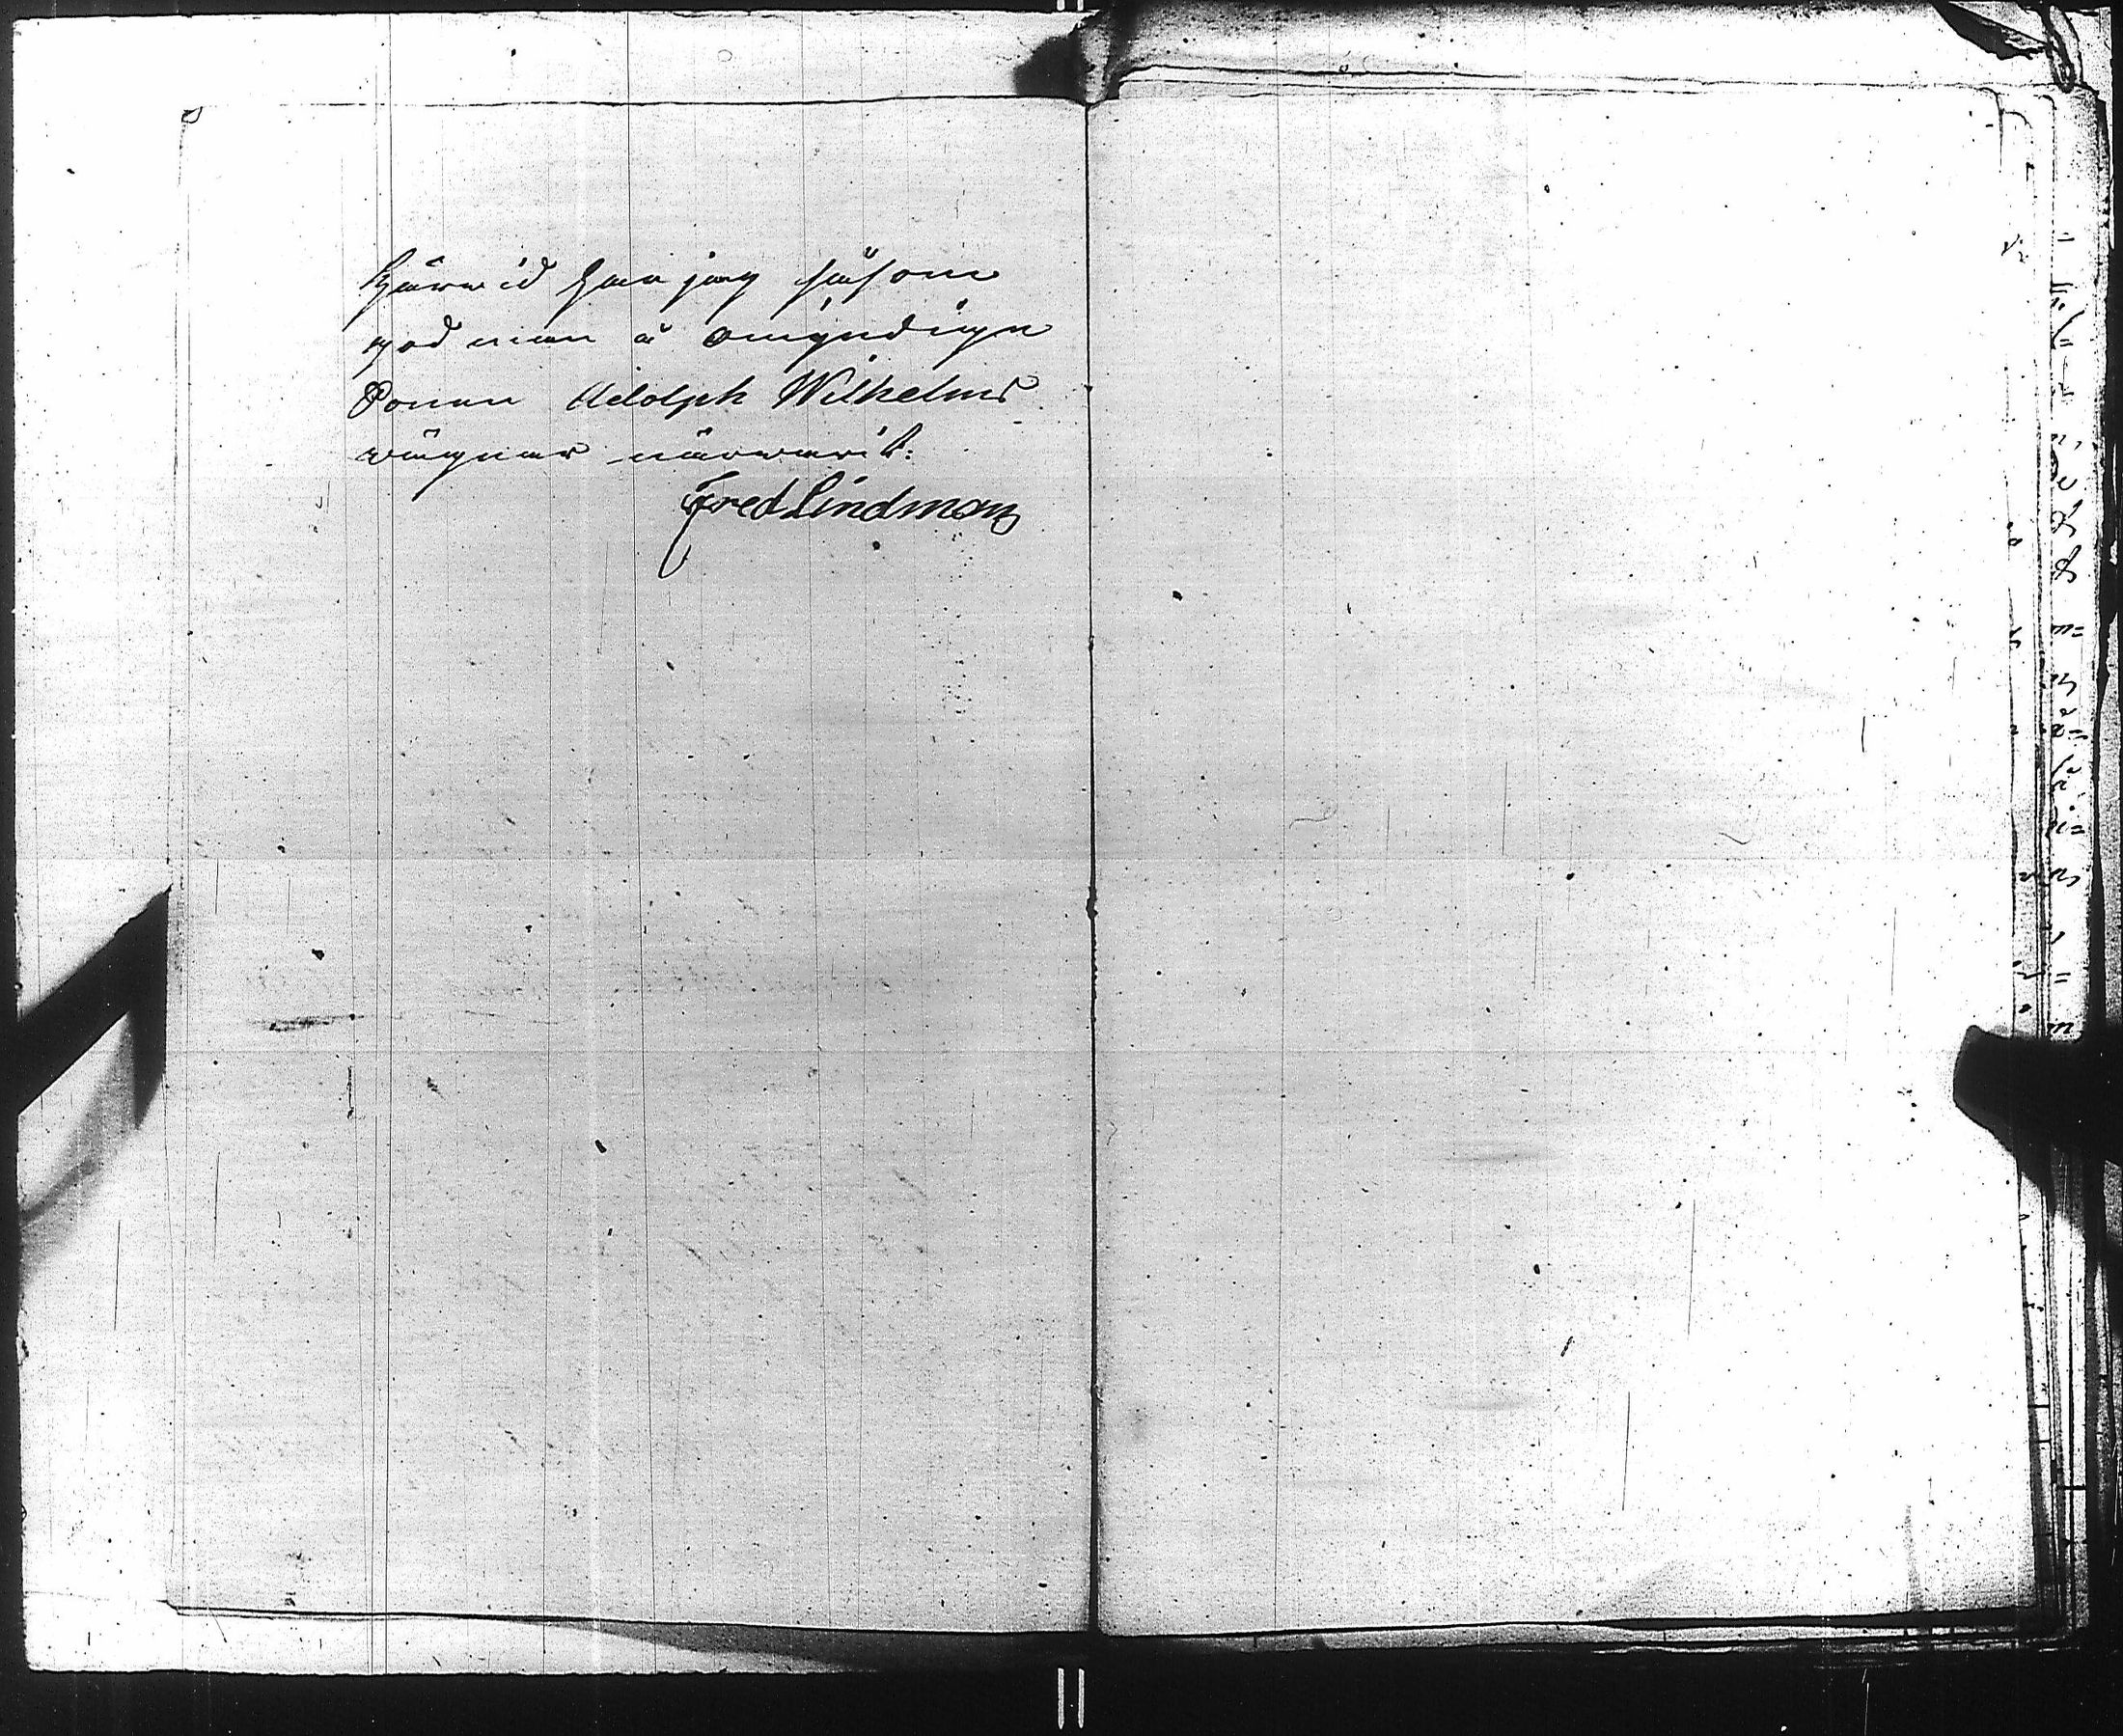 Härvid har jag såsom
god man å omyndige
Sonen Adolph Wilhelms
vägnar närvarit:
Fred Lindman